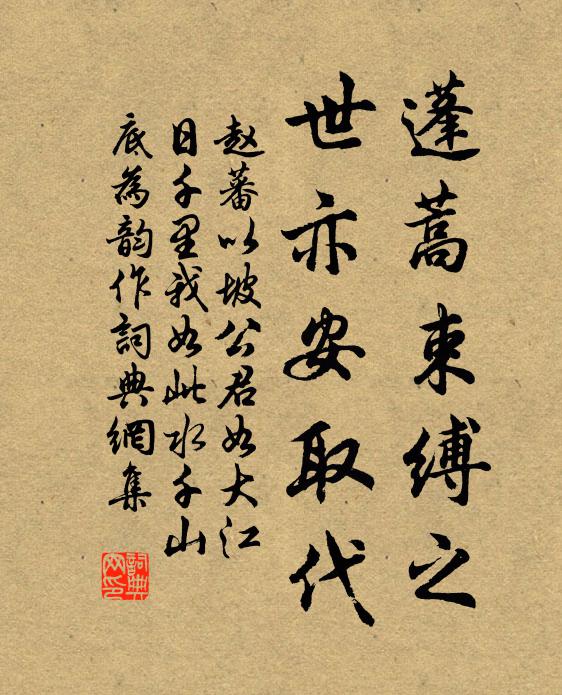 蓬蒿束缚之
世亦安取代
赵蕃以坡公君如大江
日千里我如此水千山
底为韵作词典网集
詞典
网印